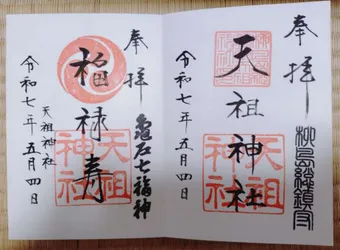 奉拝
柳島総鎮守
天祖神社
天祖神社
令和七年五月四日
奉拝
龜戸七福神
福禄寿
天祖神社
令和七年五月四日
天祖神社